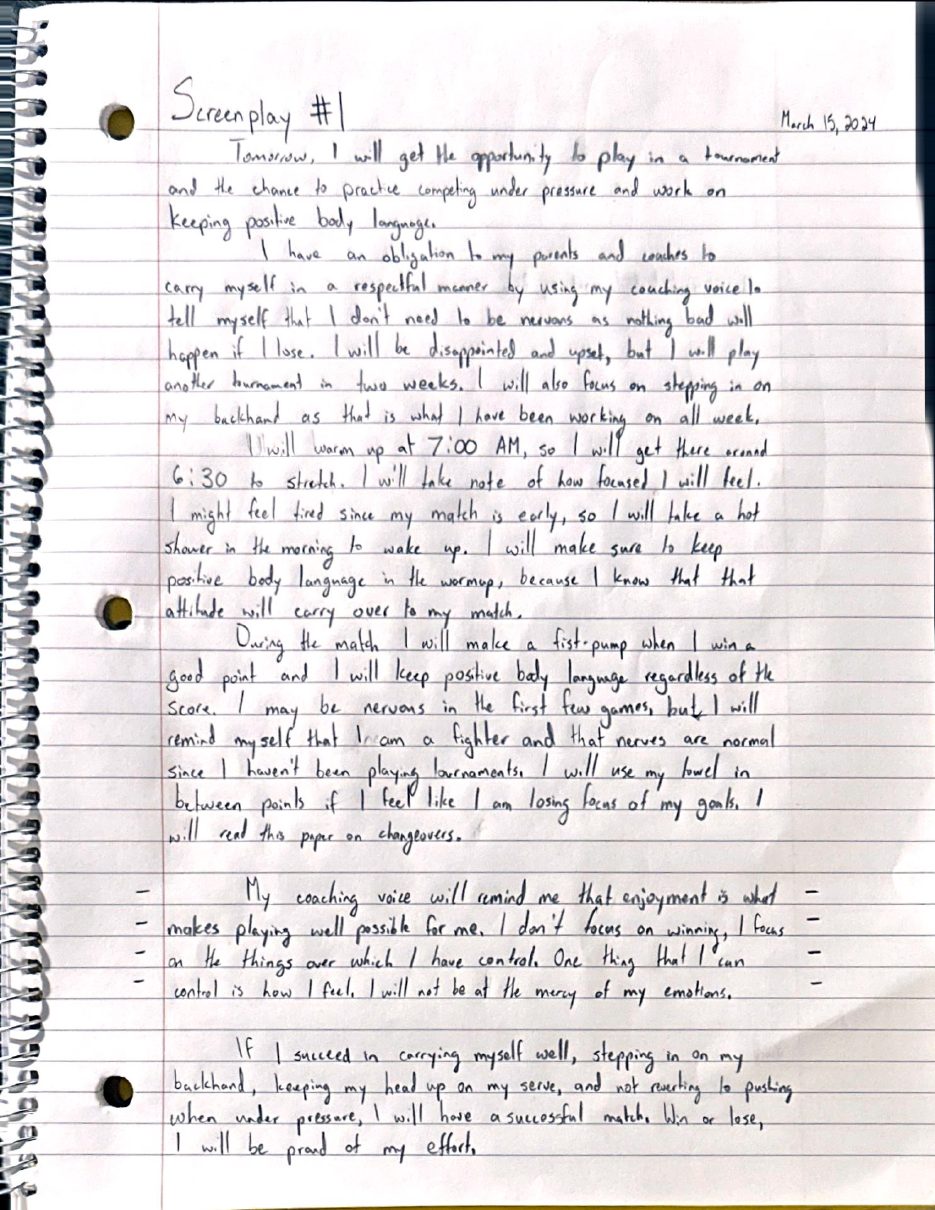 Screenplay #1
March 15, 2024
Tomorrow, I will get the opportunity to play in a tournament
and the chance to practice competing under pressure and work on
keeping positive body language.
I have an obligation to my parents and coaches to
carry myself in a respectful manner by using my coaching voice to
tell myself that I don't need to be nervous as nothing bad will
happen if I lose. I will be disappointed and upset, but I will play
another tournament in two weeks. I will also focus on stepping in on
my backhand as that is what I have been working on all week.
I will warm up at 7:00 AM, so I will get there around
6:30 to stretch. I will take note of how focused I will feel.
I might feel tired since my match is early, so I will take a hot
shower in the morning to wake up. I will make sure to keep
positive body language in the warmup, because I know that that
attitude will carry over to my match.
During the match I will make a fist-pump when I win a
good point and I will keep positive body language regardless of the
score. I may be nervous in the first few games, but I will
remind myself that I am a fighter and that nerves are normal
since I haven't been playing tournaments. I will use my towel in
between points if I feel like I am losing focus of my goals. I
will read this paper on changeovers.
- My coaching voice will remind me that enjoyment is what -
- makes playing well possible for me. I don't focus on winning, I focus -
- on the things over which I have control. One thing that I can -
- control is how I feel. I will not be at the mercy of my emotions. -
If I succeed in carrying myself well, stepping in on my
backhand, keeping my head up on my serve, and not reverting to pushing
when under pressure, I will have a successful match. Win or lose,
I will be proud of my effort.